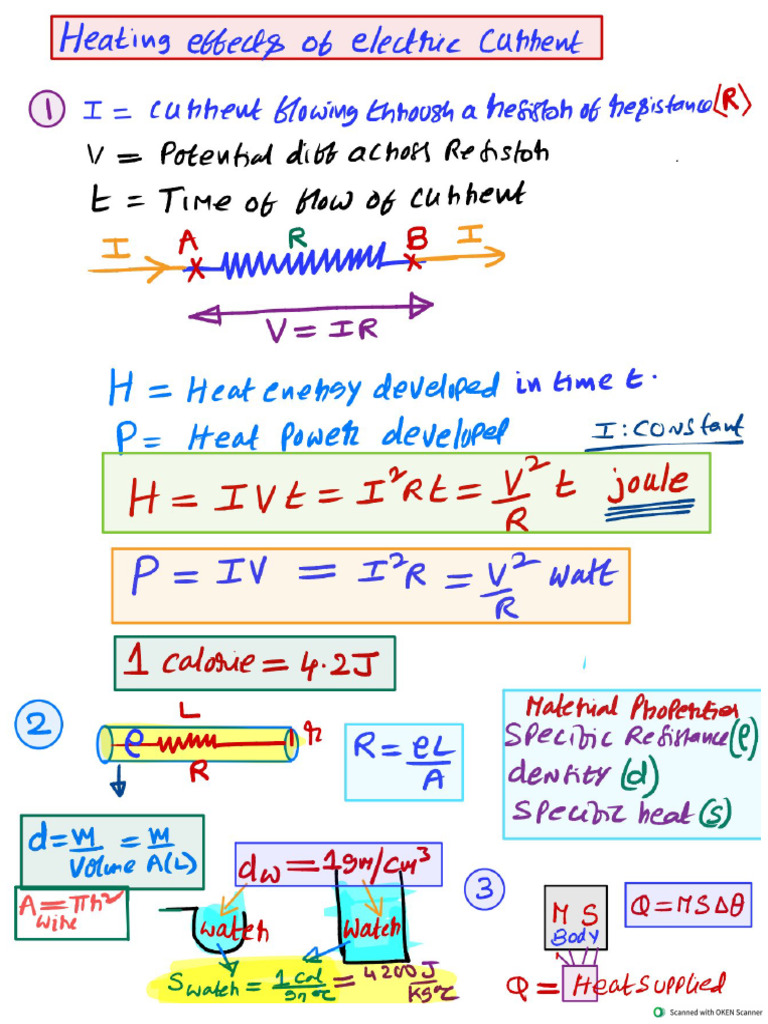 Heating effects of electric current
① I = current flowing through a resistor of resistance (R)
V = Potential diff across Resistor
t = Time of flow of current
I A R B I
V = IR
H = Heat energy developed in time t.
P = Heat Power developed
I : constant
H = IVt = I²Rt = V²/R t joule
P = IV = I²R = V²/R watt
1 calorie = 4.2J
② L
ρ r
R
R = ρL/A
Material Properties
Specific Resistance (ρ)
density (d)
specific heat (s)
d = m/Volume = m/A(L)
A = πr²
wire
d_w = 1gm/cm³
water water
S_water = 1 cal/gm°c = 4200 J/kg°c
③ M S
Body
Q = MSΔθ
Q = Heat supplied
Scanned with OKEN Scanner